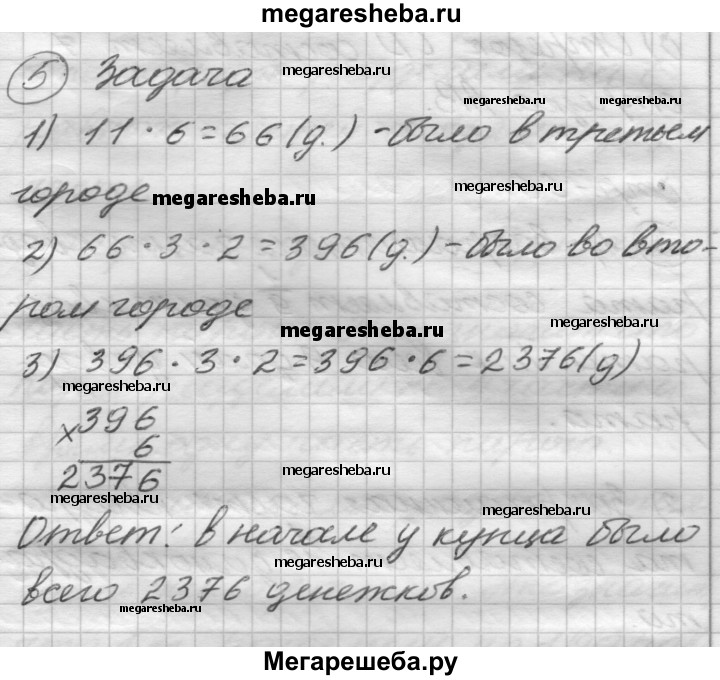 megaresheba.ru
5 Задача
megaresheba.ru
megaresheba.ru megaresheba.ru
1) 11 · 6 = 66 (д.) - было в третьем
городе
megaresheba.ru megaresheba.ru
2) 66 · 3 · 2 = 396 (д.) - было во вто-
ром городе
megaresheba.ru megaresheba.ru
3) 396 · 3 · 2 = 396 · 6 = 2376 (д)
megaresheba.ru
× 396
6
2376
megaresheba.ru
megaresheba.ru megaresheba.ru
Ответ: в начале у купца было
megaresheba.ru
всего 2376 денежков.
megaresheba.ru
Мегарешеба.ру